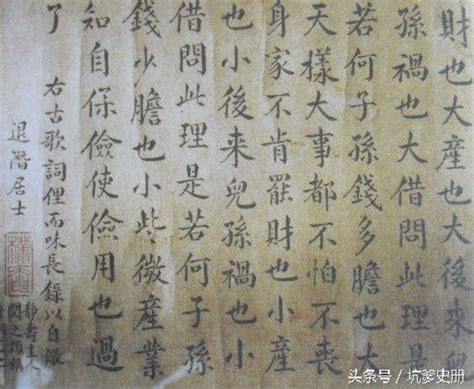 財也大産也大後来
孫禍也大借問此理是
若何子孫錢多膽也
天樣大事都不怕不喪
身家不肯罷財也小産
也小後来兒孫禍也小
借問此理是若何子孫
錢少膽也小些微産業
知自保儉使儉用也過
了
右古歌詞俚而味長錄以自儆
居士
壽主人
头条号 / 坑爹史册